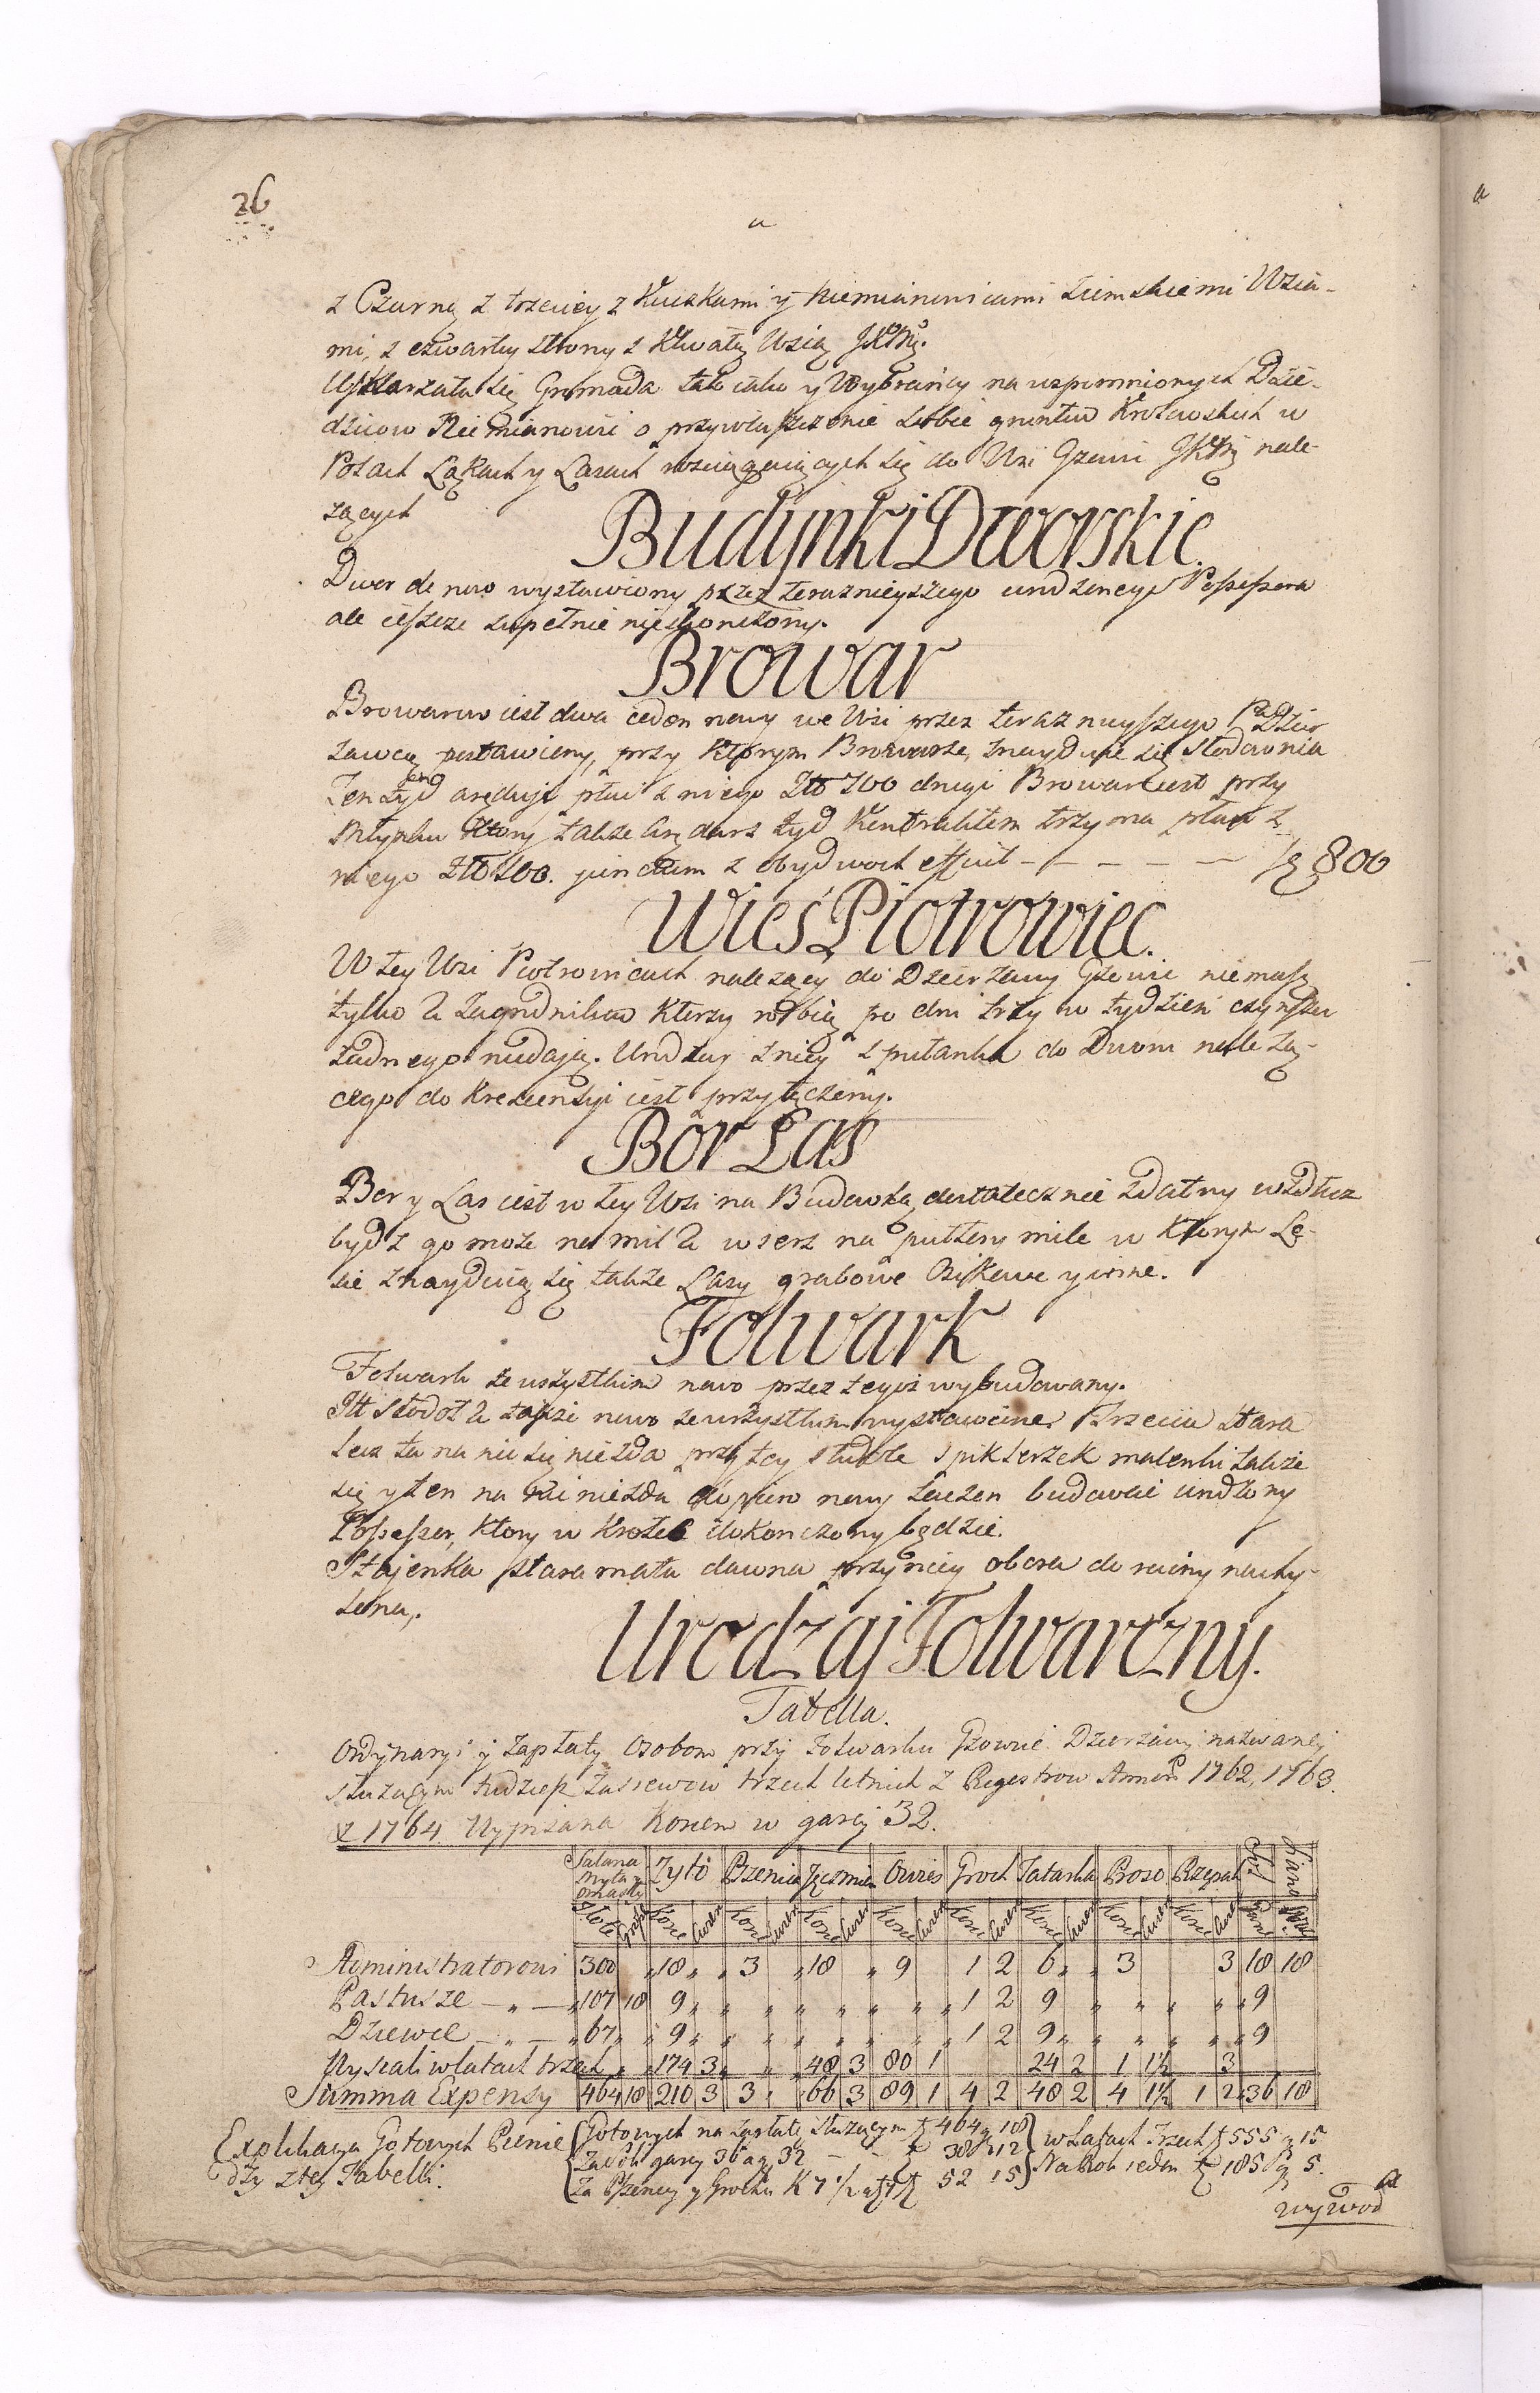 26
a
z Czarną z trzeciey z Kuczkami y Niemianowicami Ziemskiemi Wsia-
mi, z czwartey strony z Chwałą Wsią JKMci.
Uskarzała się Gromada tak cała y Wybrańcy na wspomnionych Dzie-
dzicow Niemianowic o przywłaszczenie sobie gruntow Krolewskich w
Polach Łąkach y Lasach rosciągaiących się do Wsi Gzowic JKMci nale-
zących
Budynki Dworskie.
Dwor de novo wystawiony przez teraznieyszego urodzonego Possessora
ale ieszcze zupełnie nieskonczony.
Browar
Browarow iest dwa ieden nowy we Wsi przez teraznieyszego Dzier
zawcę postawiony, przy ktorym Browarze, znayduie się Słodownia
Ten Zyd arenduje płaci z niego Zło 700 drugi Browar iest przy
Młynku ktory takze Arędarz Zyd Kontraktem trzyma płaci z
niego Zło 100. junctim z obydwoch efficit - - - - - - 800
Wieś Piotrowiec.
W tey Wsi Piotrowicach nalezący do Dzierzawy Gzowic niemasz
tylko 2 Zagrodnikow ktorzy robią po dni trzy w tydzień czynszu
zadnego niedają. Urodzay z niey z pułanku do Dworu nalezą-
cego do Krescensyi iest przyłączony.
Bór Las
Bor y Las iest w tey Wsi na Budowlą dostatecznie zdatny wzdłuz
bydz go moze na mil 2 w szerz na pułtory mile w ktorym Le-
sie znayduią się takze Lasy grabowe Osikowe y inne.
Folwark
Folwark ze wszystkim novo przez tegoz wybudowany.
Itt Stodoł 2 także novo ze wszystkim wystawione Trzecia stara
lecz ta na nic się niezda przy tey stodole spiklerzek malenki takze
się y ten na nic niezda dopiero nowy zaczon budować urodzony
Possessor, ktory w krotce dokonczony będzie.
Stajenka stara mała dawna przy niey obora do ruiny nachy-
lona.
Urodzaj Folwarczny.
Tabella.
Ordynaryi y Zapłaty Osobom przy Folwarku Gzowic Dzierzawy nazwaney
słuzącym tudziesz Zasiewow trzech letnich z Regestrow Annor 1762, 1763.
& 1764 Wypisana Korzec w garcy 32.
Salaria Myta y omasty Zyto Pszenica Jęczmień Owies Groch Tatarka Proso Rzepak Sol Siano
Złote Grosze Korce Cwier Korce Cwier Korce Cwier Korce Cwier Korce Cwier Korce Cwier Korce Cwier Korce Cwier
Administratorowi 300 „ 18 „ „ 3 „ 18 „ 9 1 2 6 „ „ 3 3 18 18
Pastusze — „ — „ 107 18 9 „ „ „ „ „ „ „ „ 1 2 9 „ „ „ „ „ 9
Dziewce — „ — „ 67 „ „ 9 „ „ „ „ „ „ 1 2 9 „ „ „ „ „ „ 9
Wysiali w latach trzech „ „ 174 3 „ „ 48 3 80 1 24 2 1 1½ 3
Summa Expensy 464 18 210 3 3 „ 66 3 89 1 4 2 48 2 4 1½ 1 2 36 18
Explikacya Gotowych Pienię
dzy z tey Tabelli:
Gotowych na Zapłatę słuzącym 464 g 18
Za Sol garcy 36 a g 32 — — 38 g 12
Za Pszenicę y Grochu K 7½ a 7 52 15
w Latach Trzech 555 g 15
Na Rok ieden 185 g 5.
a
wywod
a